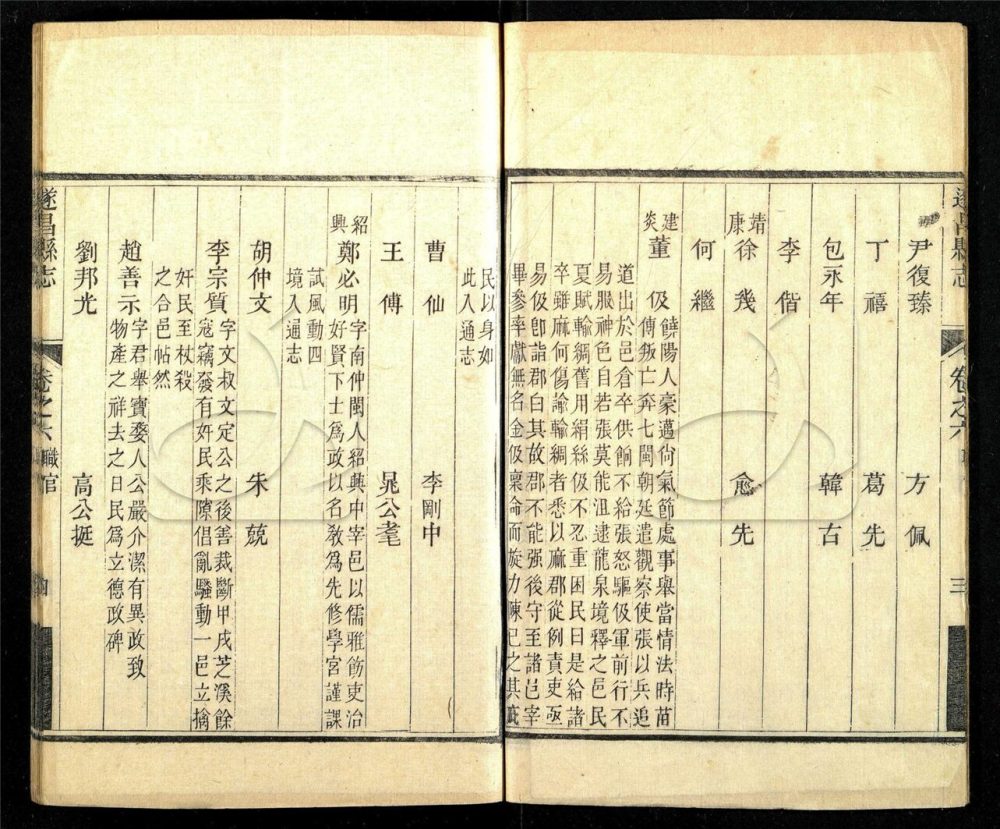 遂昌縣志 卷之六 三
尹復臻 方佩
丁禧 葛先
包永年 韓古
李偕
靖康 徐㡬 愈先
何繼
建炎 董伋 饒陽人豪邁尙氣節處事舉當情法時苗
傅叛亡奔七閩朝廷遣觀察使張以兵追
道出於邑倉卒供餉不給張怒驅伋軍前行不
易服神色自若張莫能沮逮龍泉境釋之邑民
夏賦輸綢舊用絹絲伋不忍重困民曰是給諸
卒雖麻何傷諭輸綢者悉以麻郡從例責吏亟
易伋卽詣郡白其故郡不能强後守至諸邑宰
畢參率獻無名金伋稟命而旋力陳已之其
民以身如
此入通志
曹仙 李剛中
王傅 晁公耄
紹興 鄭必明 字南仲閩人紹興中宰邑以儒雅飭吏治
好賢下士爲政以名敎爲先修學宮謹課
試風動四
境入通志
胡仲文 朱兢
李宗質 字文叔文定公之後善裁斷甲戌芝溪餘
寇竊發有奸民乘隙倡亂騷動一邑立擒
奸民至杖殺
之合邑帖然
趙善示 字君舉寶婺人公嚴介潔有異政致
物產之祥去之日民爲立德政碑
劉邦光 高公挺
遂昌縣志 卷之六 職官 四